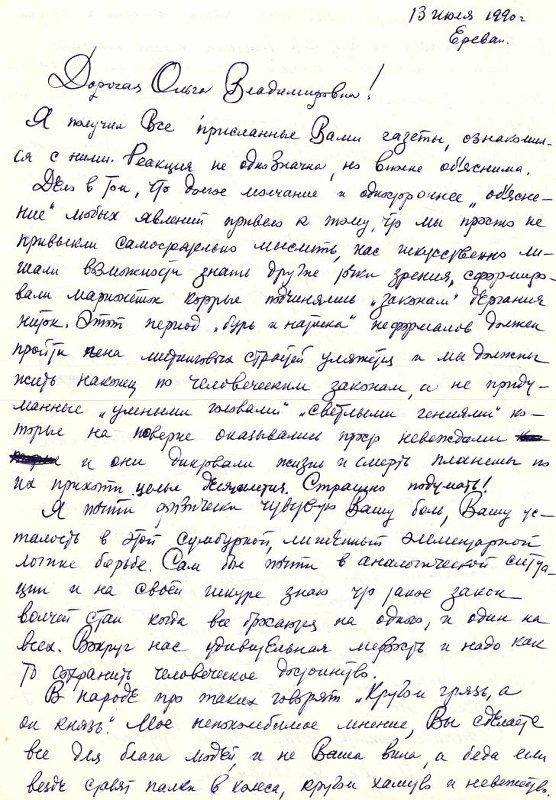 13 июля 1990 г
Ереван.
Дорогая Ольга Владимировна!
Я получил все присланные Вами газеты, ознакомил-
ся с ними. Реакция не однозначна, но вполне объяснима.
Дело в том, что долгое молчание и одностороннее „объясне-
ние" любых явлений привело к тому, что мы просто не
привыкли самостоятельно мыслить, нас искусственно ли-
шали возможности знать другие точки зрения, сформиро-
вали марионеток которые подчинялись „законам" дергания
ниток. Этот период „бурь и натиска" неформалов должен
пройти пена митинговых страстей уляжется и мы должны
жить наконец по человеческим законам, а не приду-
манные „умными головами" „светлыми гениями" ко-
торые на поверке оказывались просто невеждами
и они диктовали жизнь и смерть планеты по
их прихоти целые десятилетия. Страшно подумать!
Я почти физически чувствую Вашу боль, Вашу ус-
талость в этой сумбурной, лишенной элементарной
логики борьбе. Сам был почти в аналогической ситуа-
ции и на своей шкуре знаю что такое закон
волчей стаи когда все бросаются на одного, и один на
всех. Вокруг нас удивительная мерзость и надо как
то сохранить человеческое достоинство.
В народе про таких говорят „Кругом грязь, а
он князь". Мое непоколебимое мнение, Вы сделаете
все для блага людей, и не Ваша вина, а беда если
везде ставят палки в колеса, кругом хамство и невежество.